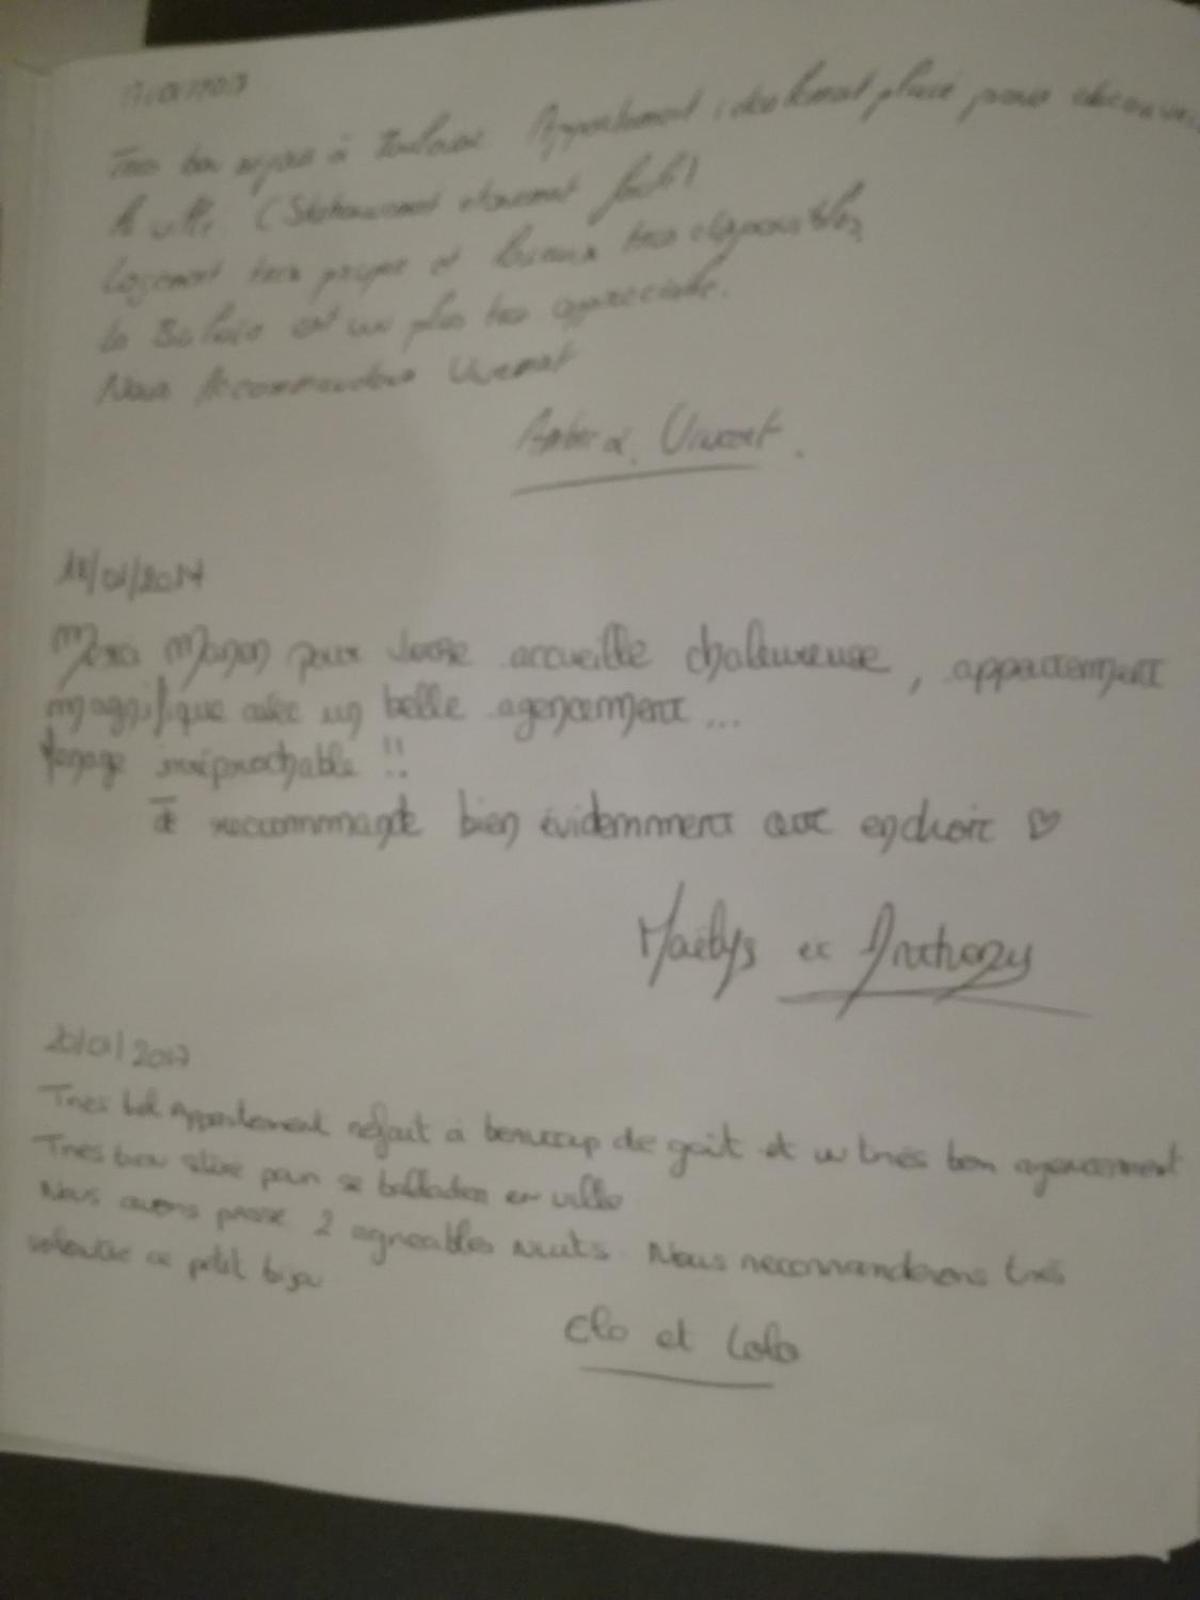 Très bon séjour à Toulouse Appartement idealement placé pour découvrir
la ville. (Stationnement
Logement très propre et loueurs très disponibles,
la est un plus très appréciable.
Nous Recommandons Vivement
Vincent.
18/01/2017
Merci Manon pour votre accueille chaleureuse, appartement
magnifique avec un belle agencement ...
irréprochable !!
Je recommande bien évidemment cet endroit ♡
Maëlys et Anthony
20/01/2017
Très bel Appartement refait à beaucoup de goût et un très bon agencement
Très bien situé pour se ballader en ville
Nous avons passé 2 agréables nuits. Nous recommanderons très
volontier ce petit bijou
Clo et Lolo